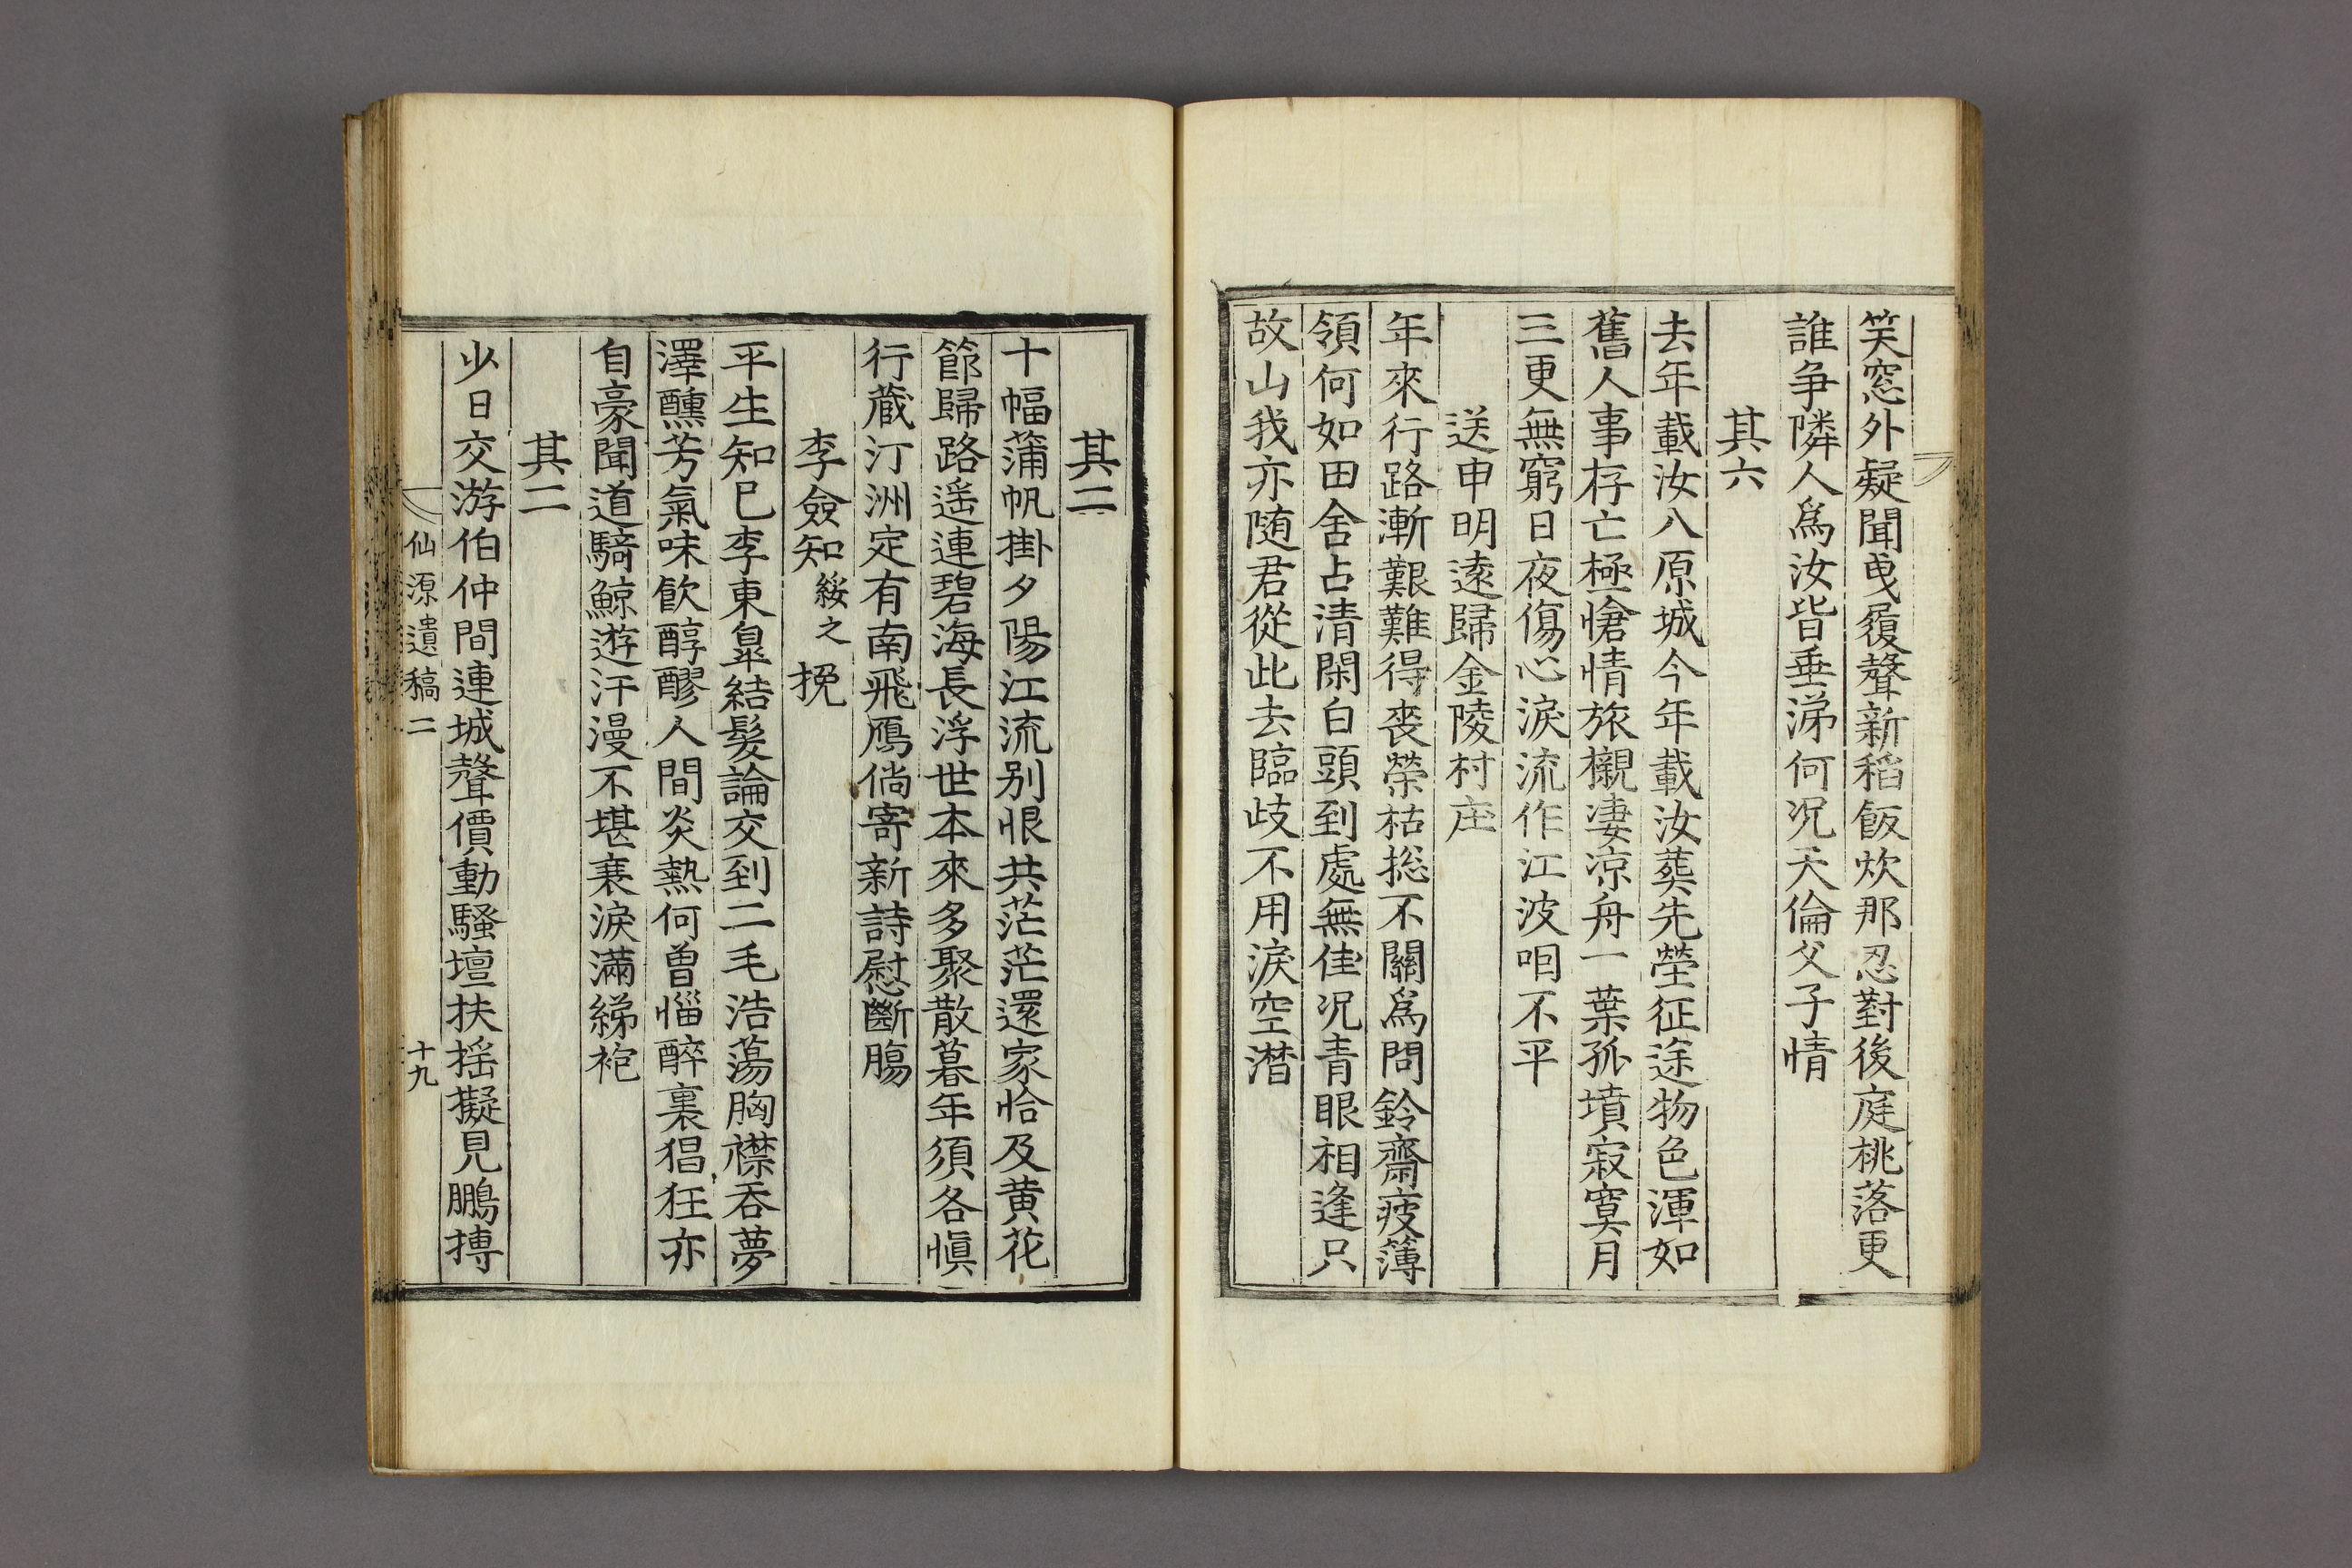 笑窓外疑聞曳履聲新稻飯炊那忍對後庭桃落更
誰争隣人爲汝皆垂涕何况天倫父子情
其六
去年載汝八原城今年載汝葬先塋征途物色渾如
舊人事存亡極愴情旅櫬凄凉舟一葉孤墳寂寞月
三更無窮日夜傷心淚流作江波咽不平
送申明遠歸金陵村庄
年來行路漸艱難得喪榮枯捴不關爲問鈴齋疲薄
領何如田舍占清閑白頭到處無佳况青眼相逢只
故山我亦随君從此去臨歧不用淚空潸
其二
十幅蒲帆掛夕陽江流别恨共茫茫還家恰及黄花
節歸路遥連碧海長浮世本來多聚散暮年須各愼
行蔵汀洲定有南飛鴈倘寄新詩慰斷膓
李僉知綏之挽
平生知已李東皐結髮論交到二毛浩蕩胸襟吞夢
澤醺芳氣味飮醇醪人間炎熱何曾惱醉裏猖狂亦
自豪聞道騎鯨遊汗漫不堪衰淚滿綈袍
其二
少日交游伯仲間連城聲價動騷壇扶揺擬見鵬搏
仙源遺稿二
十九